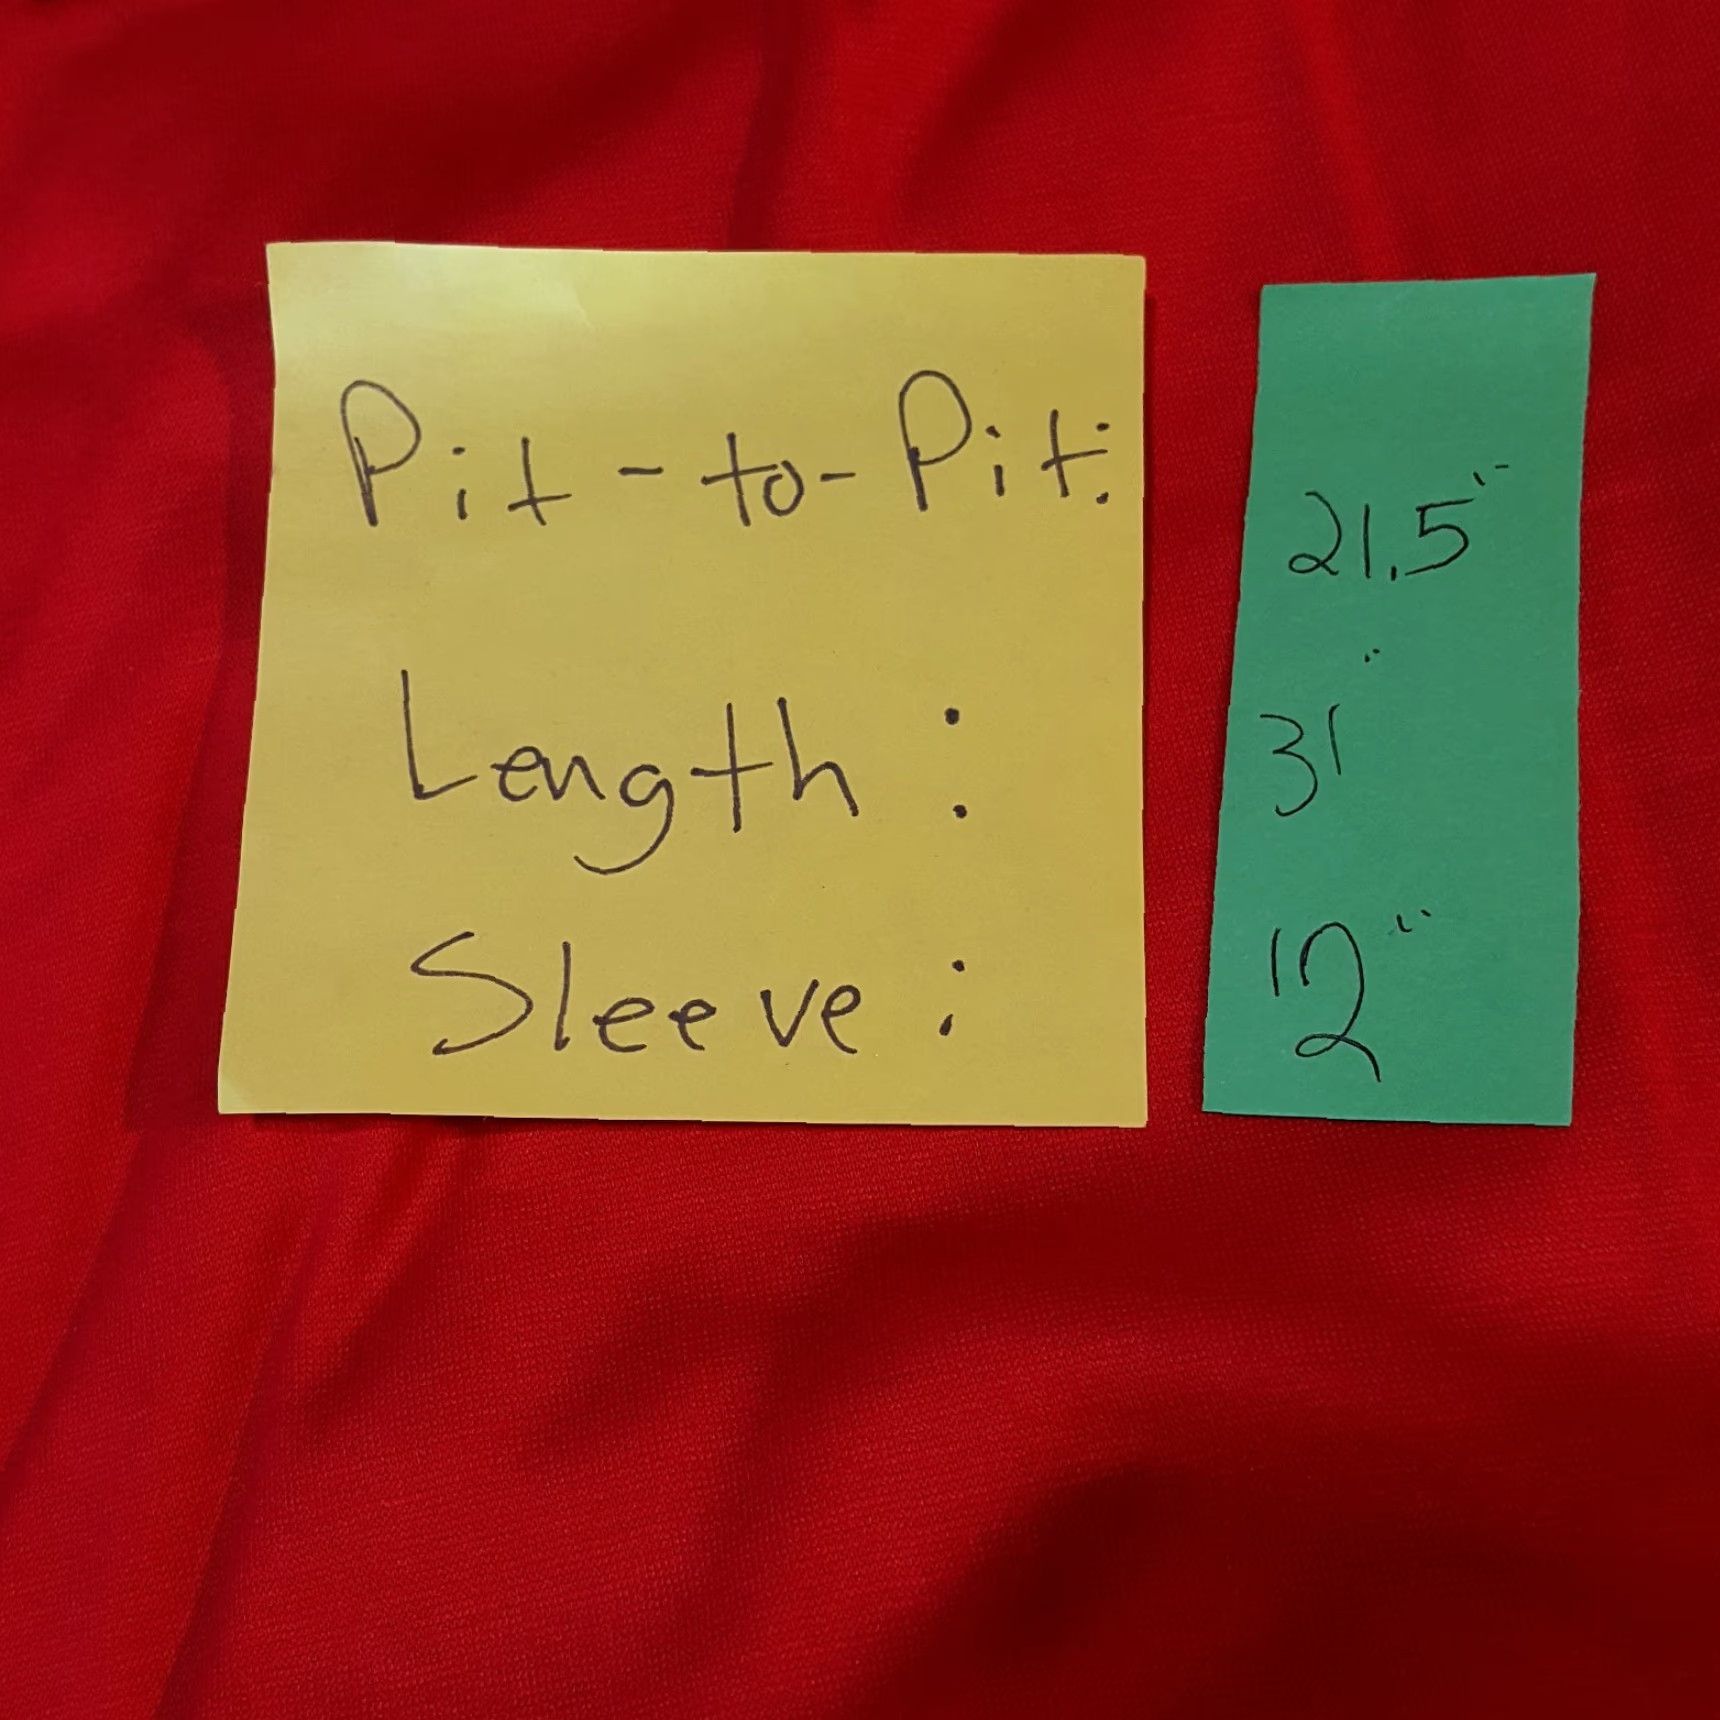 Pit-to-Pit: 21.5"
Length: 31"
Sleeve: 12"